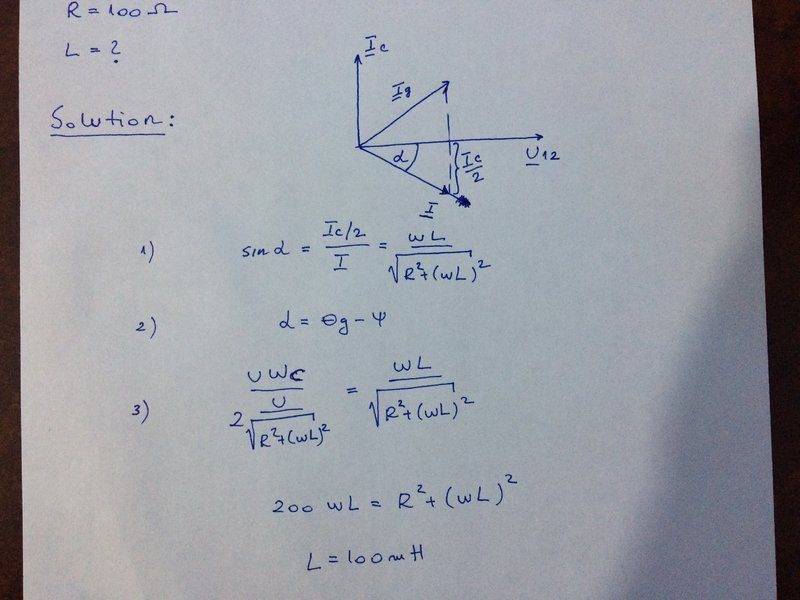 R = 100 Ω
L = ?
Solution:
Ic
Ig
α
Ic/2
U12
I
1) sin α = (Ic/2)/I = ωL/√R²+(ωL)²
2) α = θg - Ψ
3) (UωC)/(2 U/√R²+(ωL)²) = ωL/√R²+(ωL)²
200 ωL = R² + (ωL)²
L = 100 mH